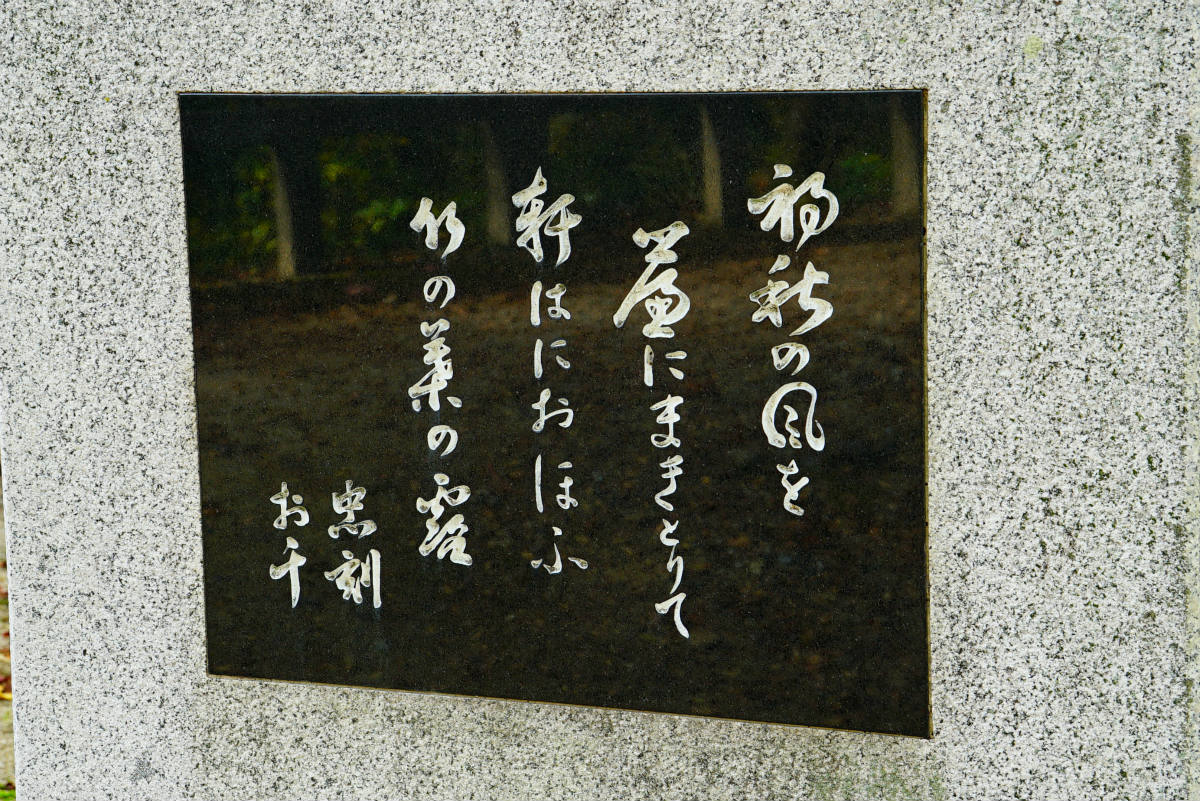 初秋の風を
簾にまきとりて
軒はにおほふ
竹の葉の露
忠刻
お千